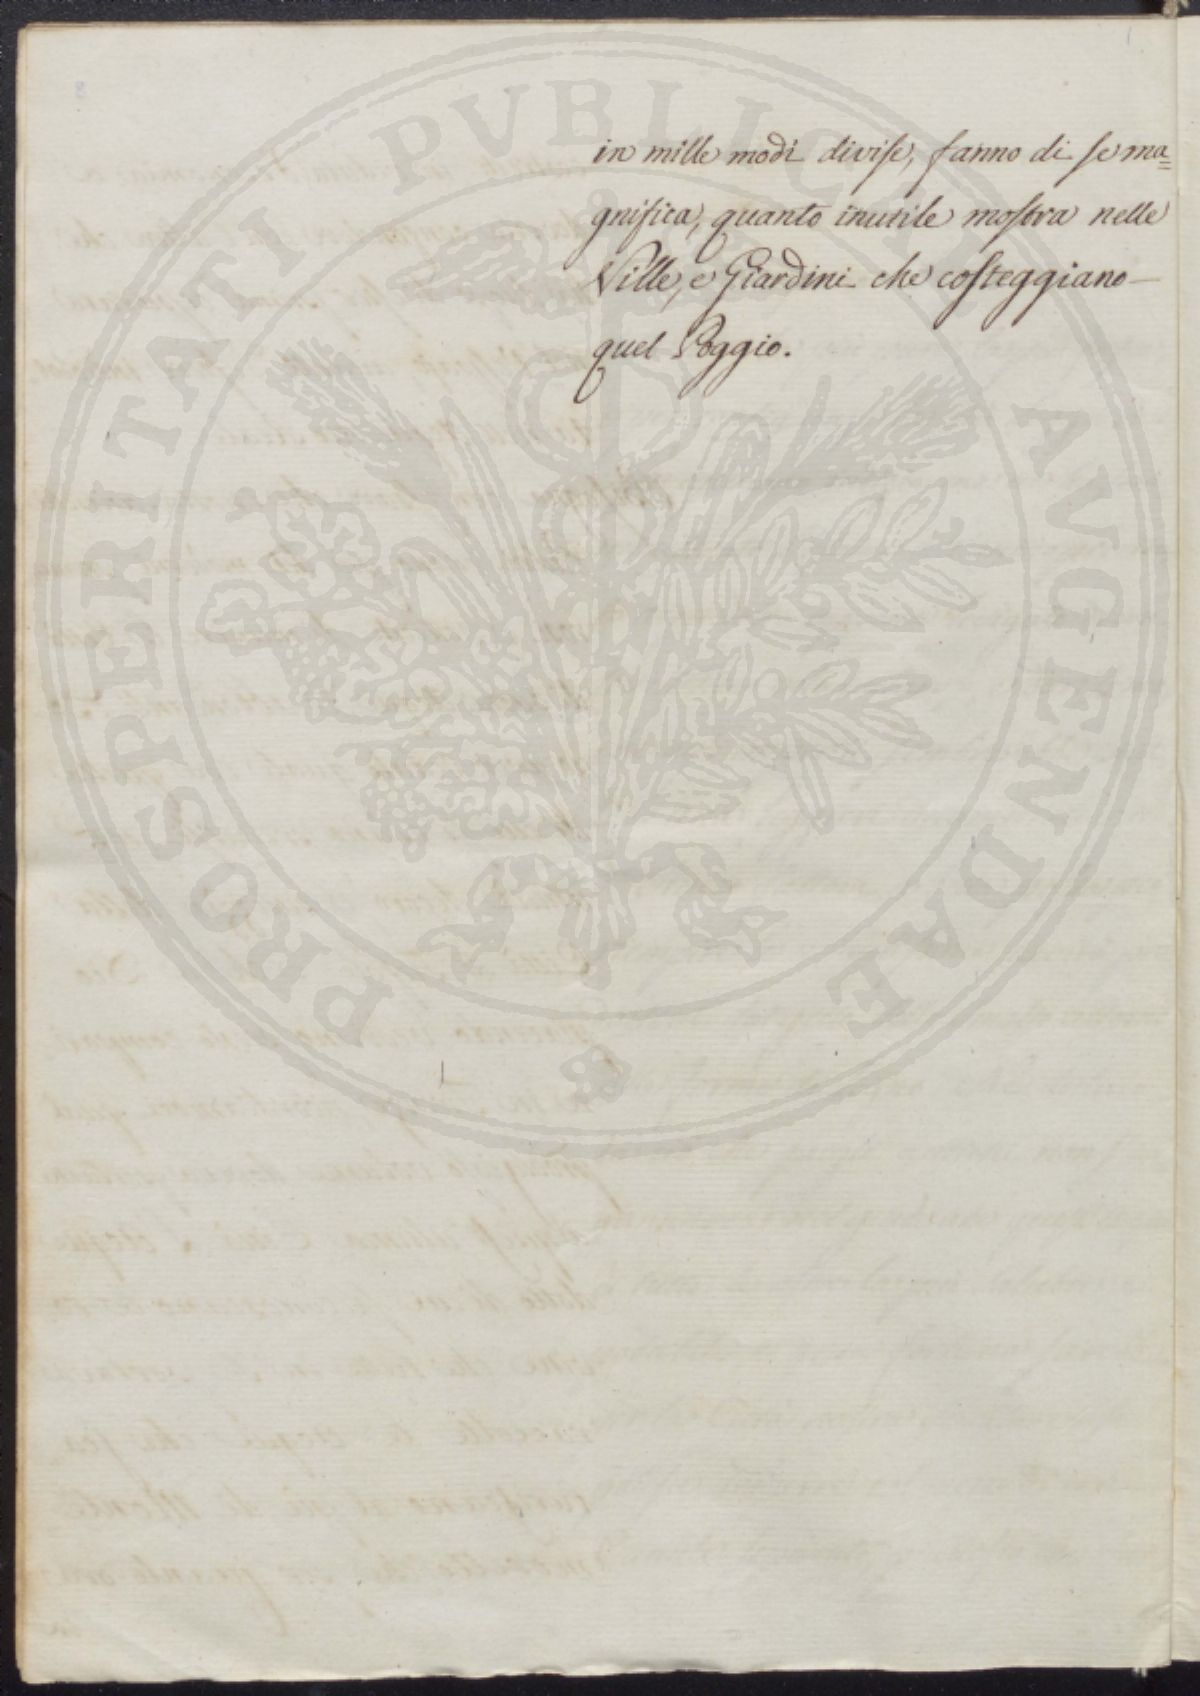 in mille modi divise, fanno di se ma=
gnifica, quanto inutile mostra nelle
Ville, e Giardini che costeggiano
quel Poggio.
PROSPERITATI PVBLICAE AVGENDAE